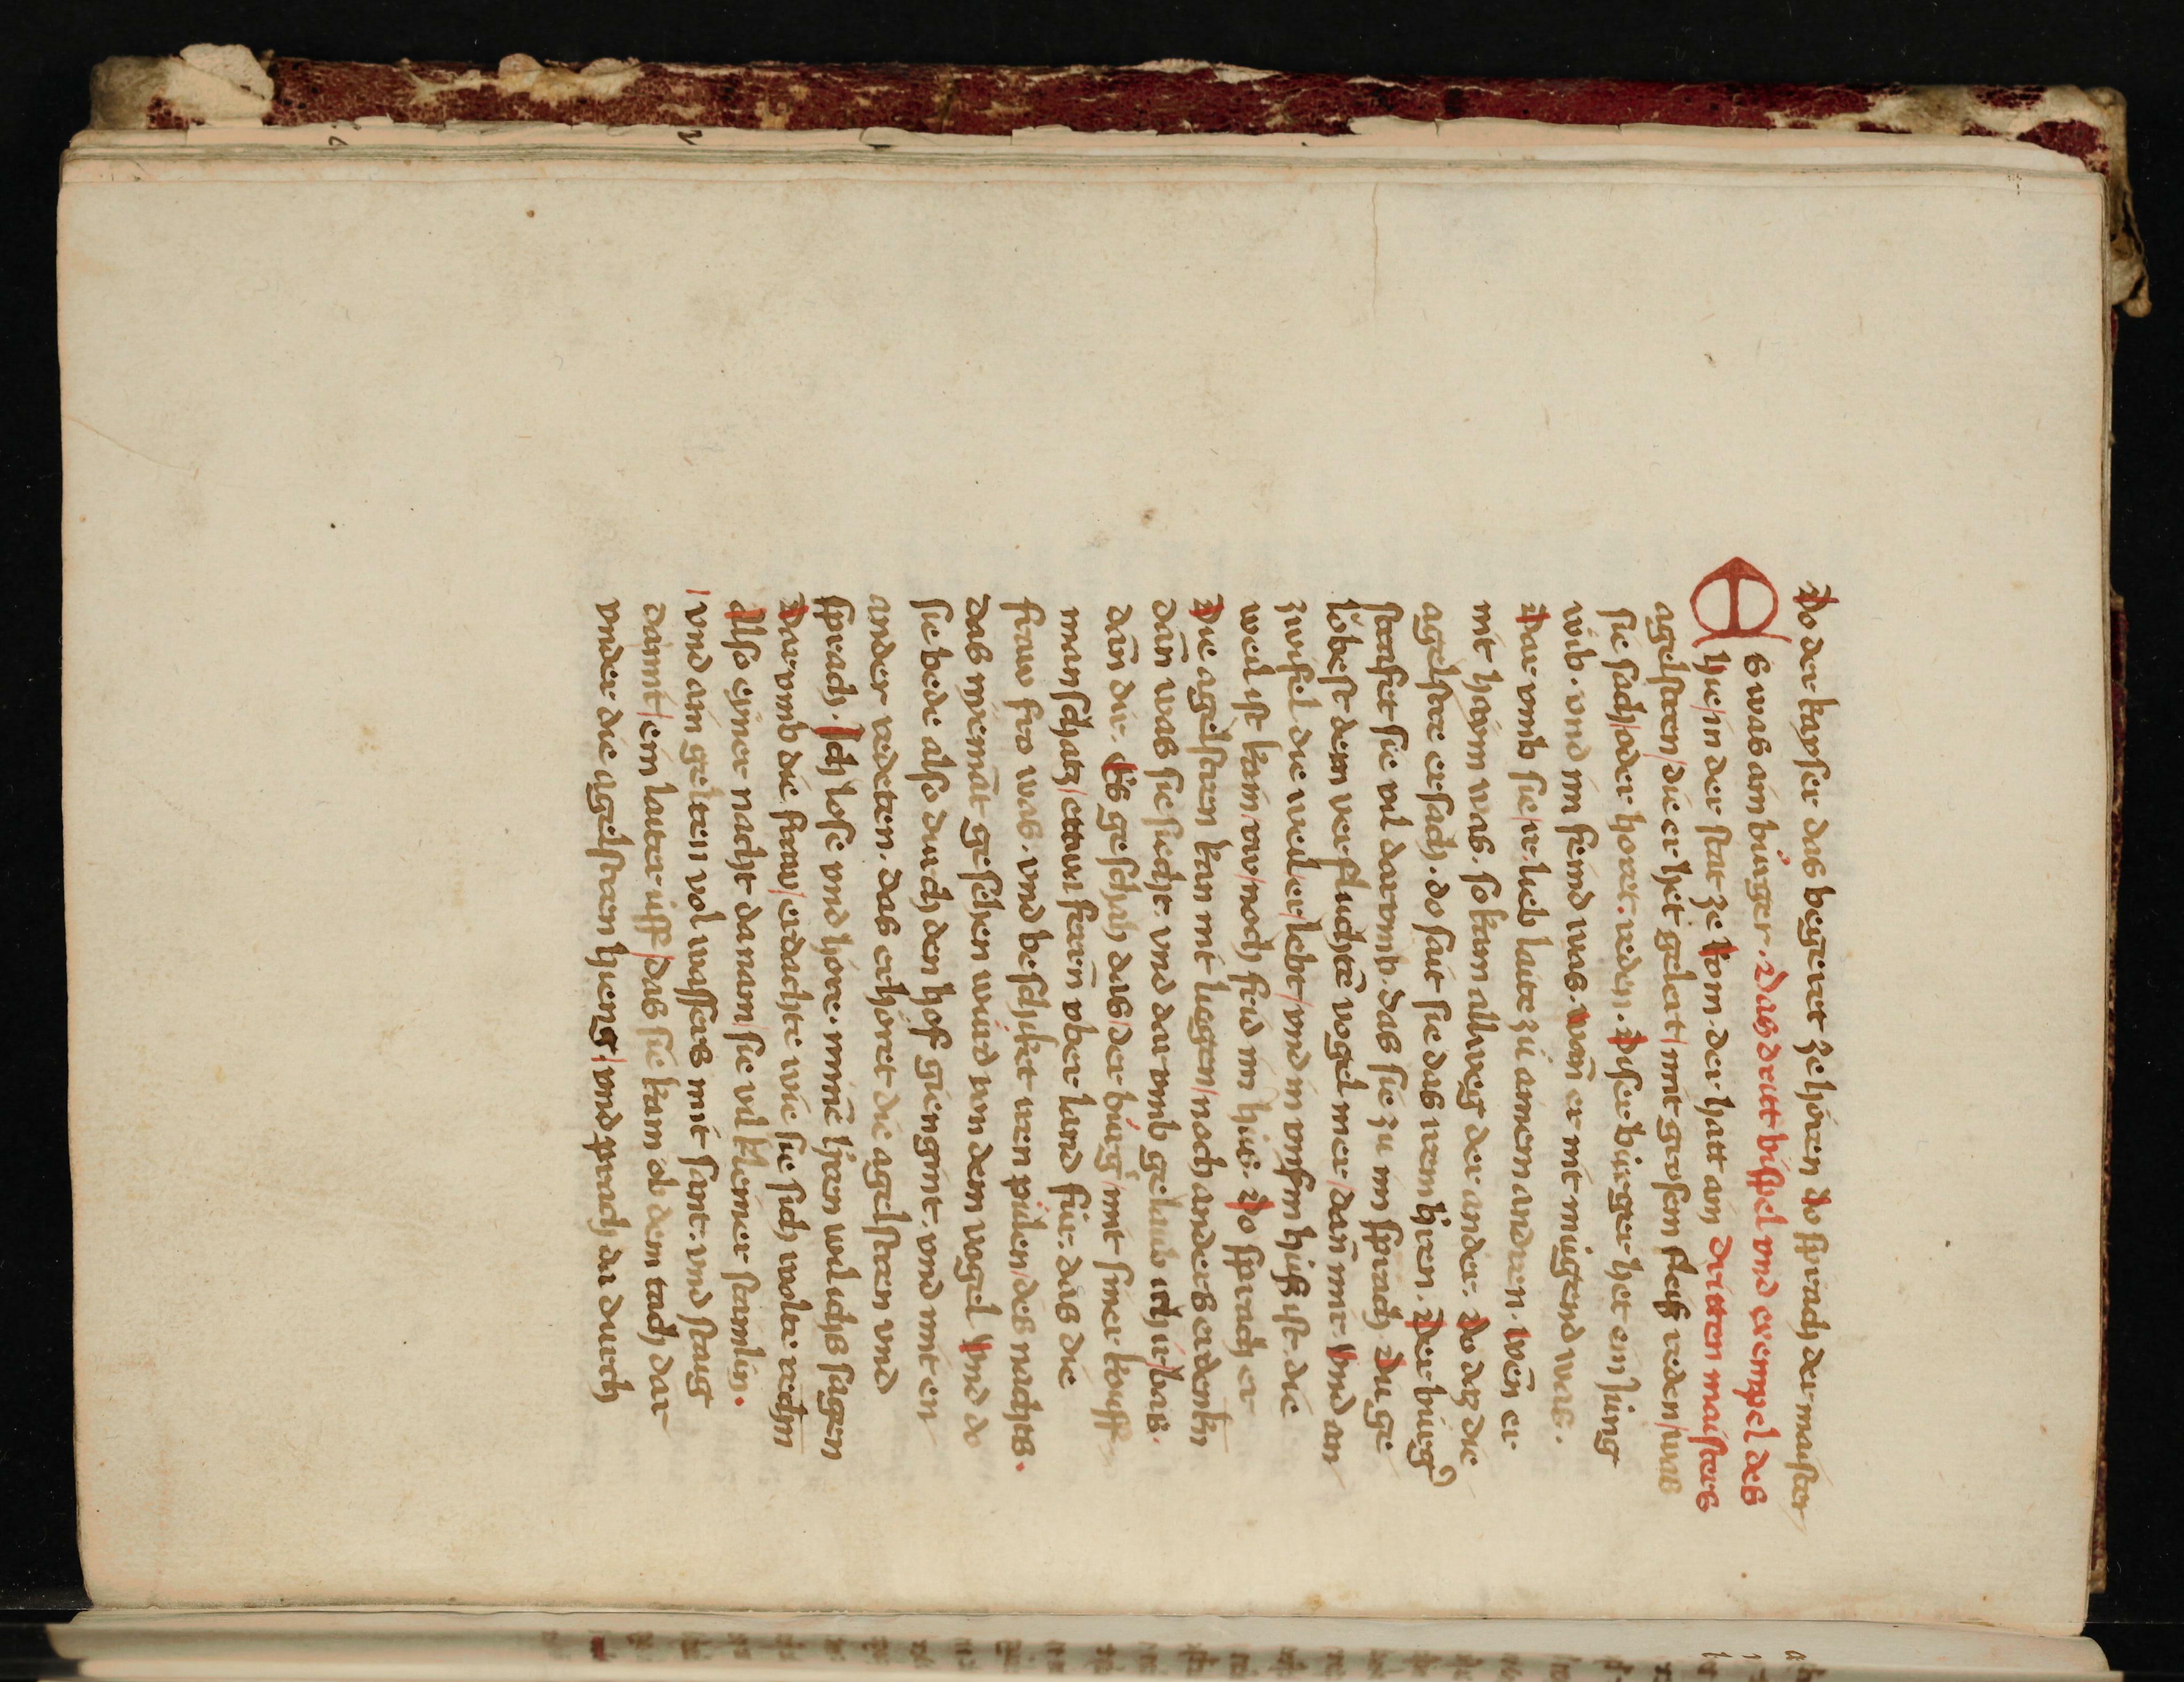 Do der kayser das begeret ze horen do sprach der maister
Es was ain burger. Das dritt bispel vnd exempel des
hie in der stat ze Rom. der hatt ain dritten maisters
agelstren / die er het gelert / mit grosem fleiß reden / was
sie sach / oder horet. reden. Diser burger het ein jung
wib. vnd im feind was. wan er nit mugend was.
Dar vmb sie ir lieb laite zu ainem andren. wen er
nit haym was. so kam allweg der ander. Do daz die
agelstre ersach. do sait sie das irem heren. Der burg
straffet sie vil dar vmb. das sie zu im sprach. Du ge
lobest dem verfluchte vogel mer / dan mir. Vnd an
zwifel die weil er lebt / vnd in vnsrm huß ist. die
weil ist kain rw / noch frid im hus. Do sprach er
Die agelstren kan nit liegen / noch anders erdenkn
dan was sie sicht. vnd dar vmb gelaub ich ir bas.
dan dir. Es geschah das / der burg mit siner kouff
manschatz / ettwan feren vber land für. das die
fraw fro was. vnd beschiket iren pulen / des nachts.
das nyemat gesehen wurd von dem vogel. Vnd do
sie bede also durch den hof giengint. vnd mit en
ander redeten. das erhöret die agelstren vnd
sprach. Ich lose vnd hore. minē heren wil ichs sagen
Dar vmb die fraw / erdachte wie sie sich wolte rechn
Also eyner nacht da nam sie vil klainer stainlin.
vnd ain gelten vol wassers mit sant. vnd staig
damit / ein laiter uff / das sie kam ob dem tach dar
vnder die agelstren hieng / vnd prach da durch